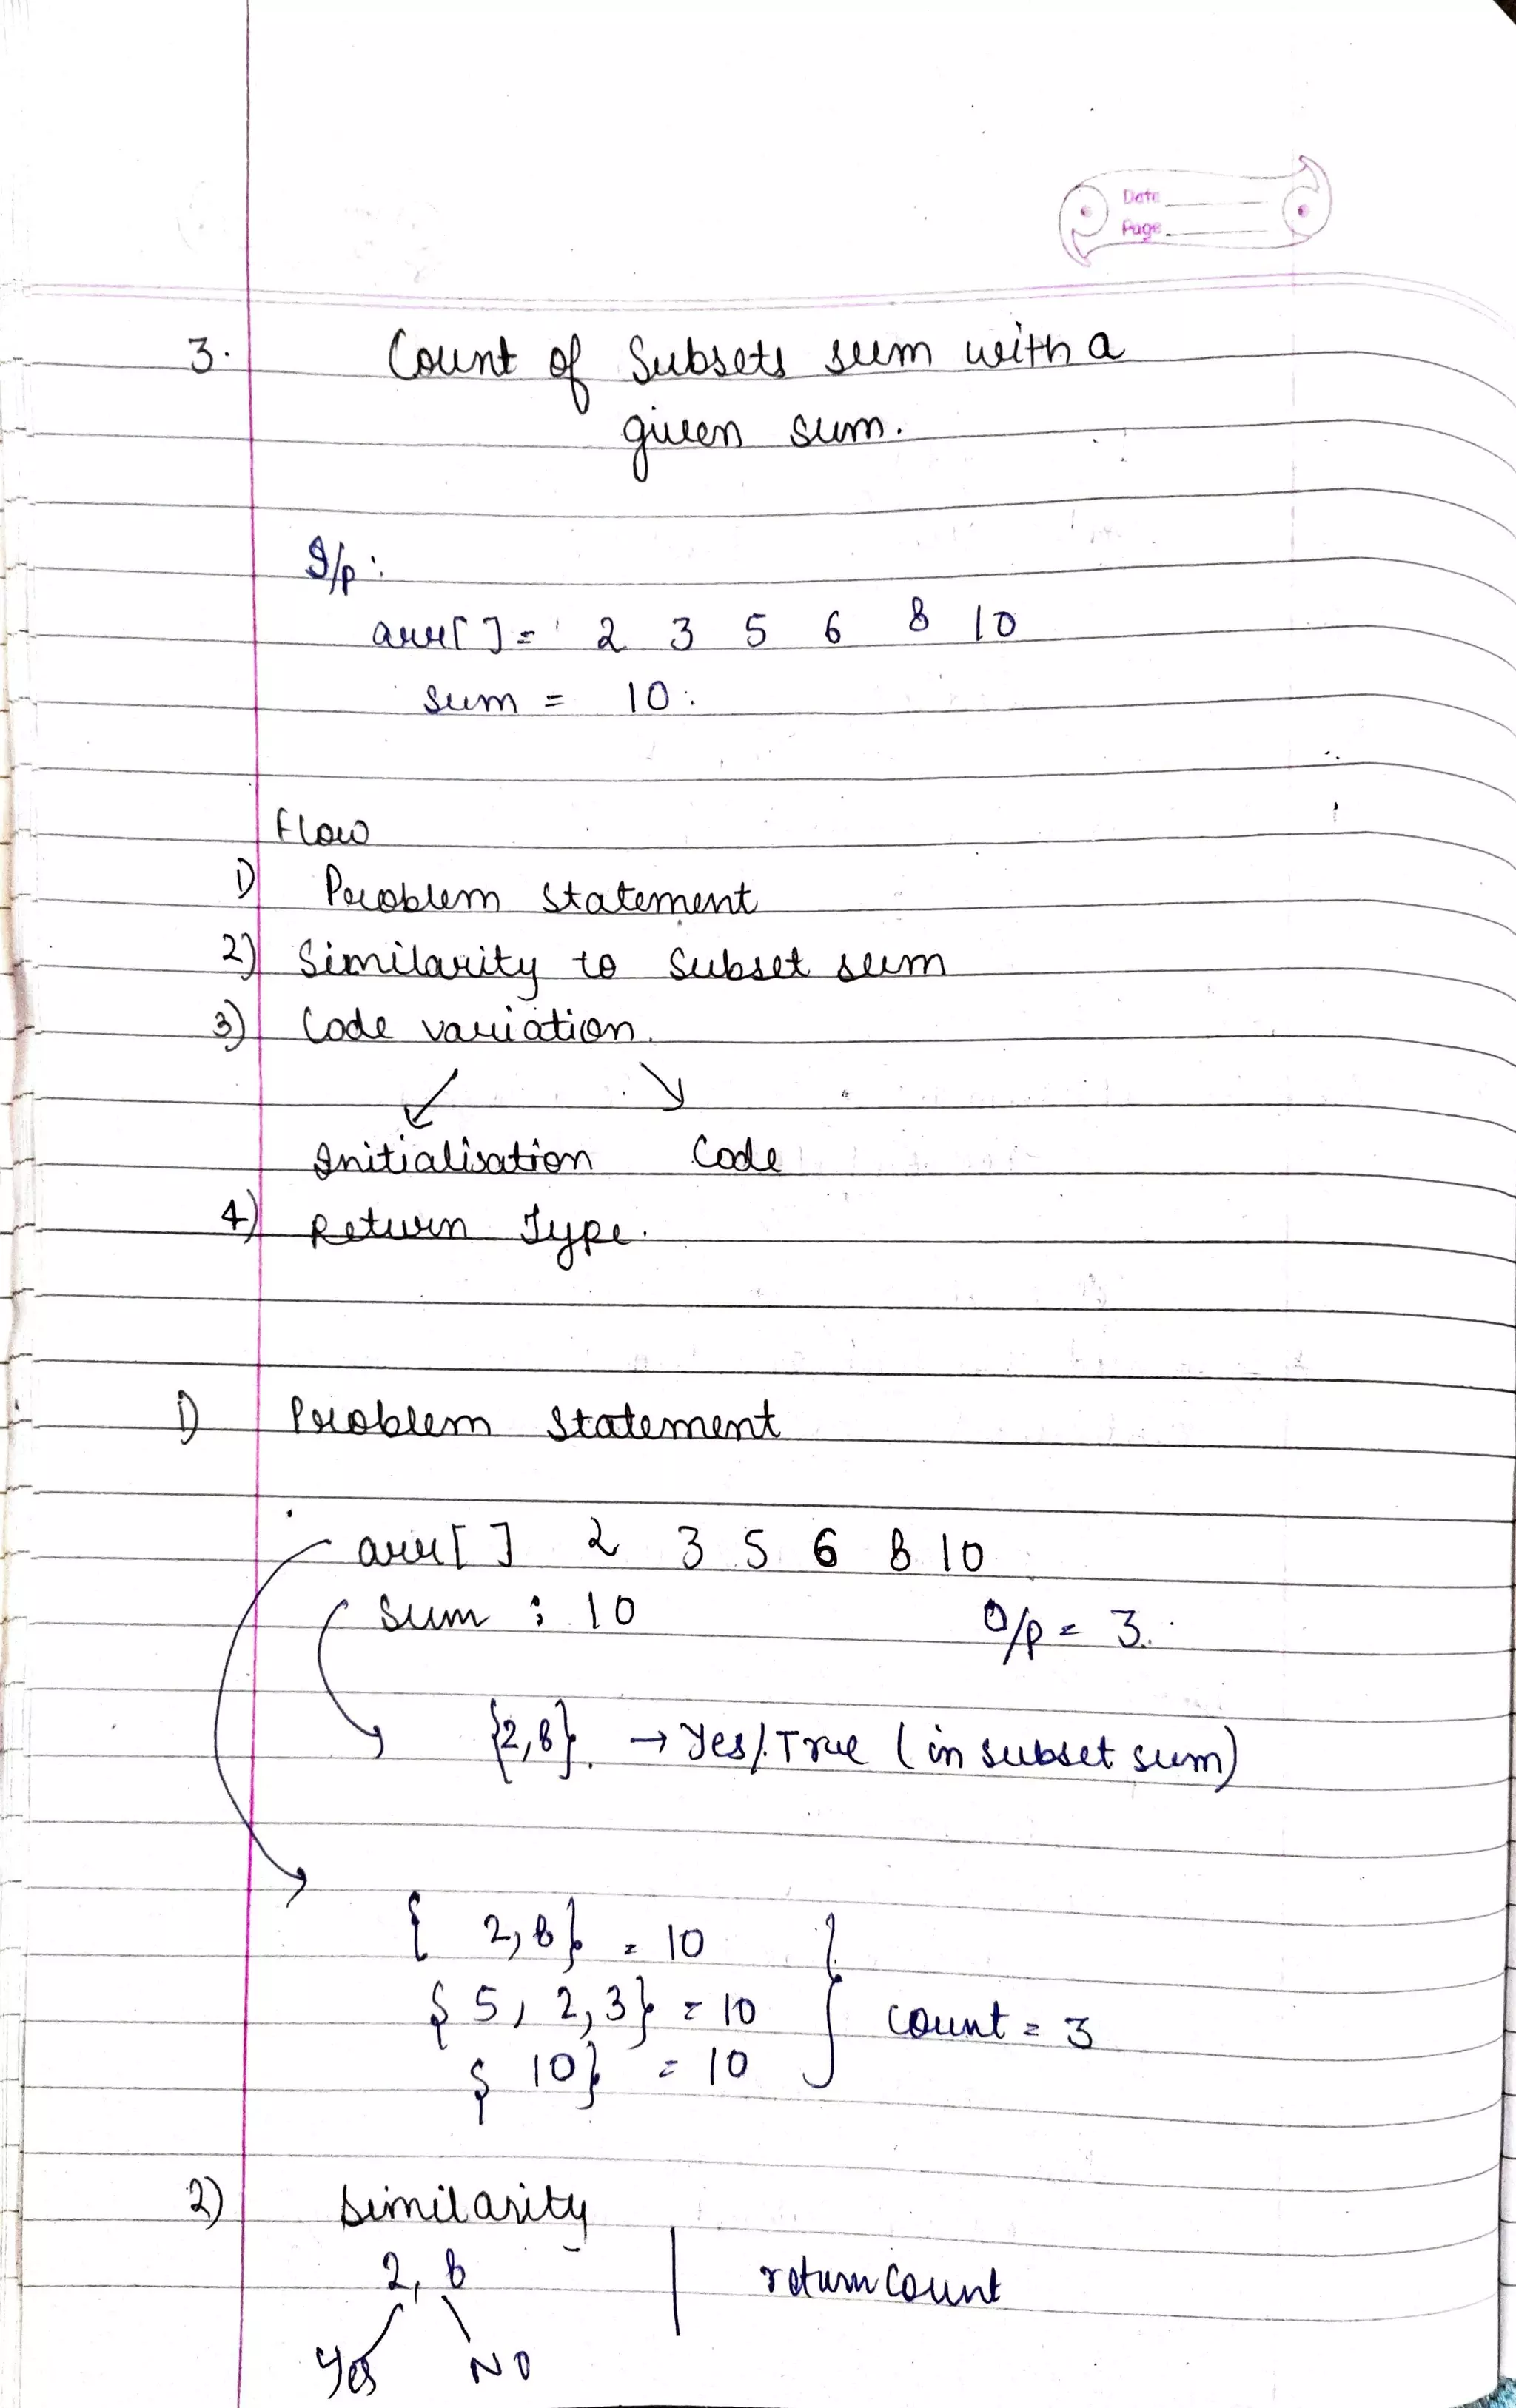 Date
Page
3. Count of Subsets sum with a
given sum.
I/p:
arr[ ] = 2 3 5 6 8 10
sum = 10.
Flow
1) Problem statement
2) Similarity to Subset sum
3) Code variation.
↙ ↘
Initialisation Code
4) Return Type.
1) Problem Statement
arr[ ] 2 3 5 6 8 10
sum : 10 O/p = 3.
{2,8}. → Yes/True (in subset sum)
{ 2,8} = 10
{ 5, 2,3} = 10 } count = 3
{ 10} = 10
2) Similarity
2, 8 | return count
Yes NO